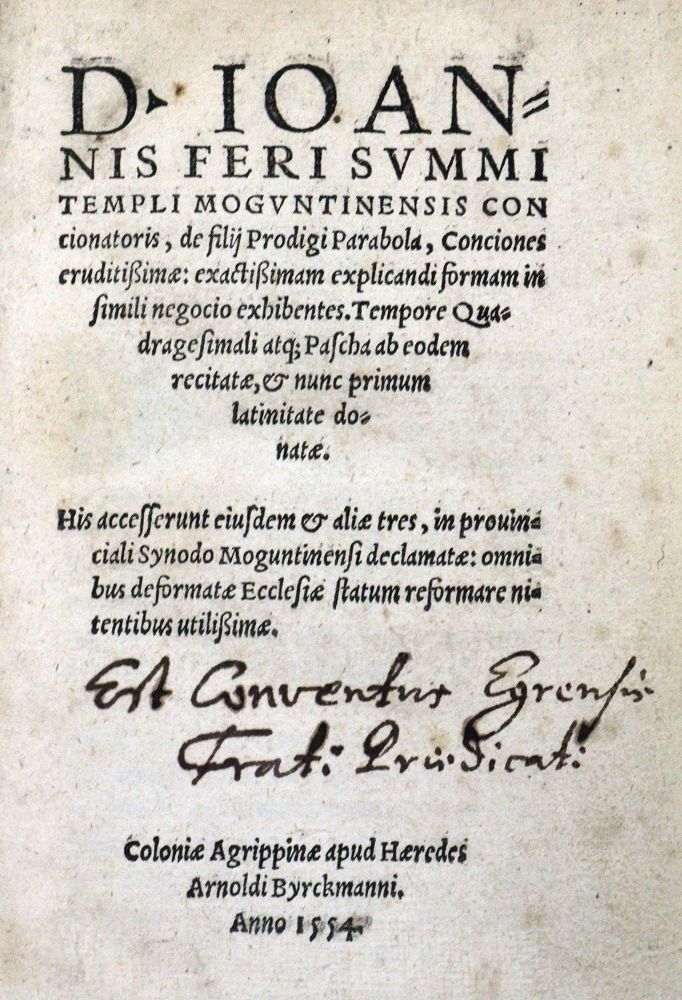 D. IOAN=
NIS FERI SVMMI
TEMPLI MOGVNTINENSIS CON
cionatoris, de filij Prodigi Parabola, Conciones
eruditißimæ: exactißimam explicandi formam in
ſimili negocio exhibentes. Tempore Qua=
drageſimali atq; Paſcha ab eodem
recitatæ, & nunc primum
latinitate do=
natæ.
His acceſſerunt eiuſdem & aliæ tres, in prouin=
ciali Synodo Moguntinenſi declamatæ: omni=
bus deformatæ Eccleſiæ ſtatum reformare ni=
tentibus utilißimæ.
Est Conventus Egrensis
Frat: Prædicat:
Coloniæ Agrippinæ apud Hæredes
Arnoldi Byrckmanni.
Anno 1554.